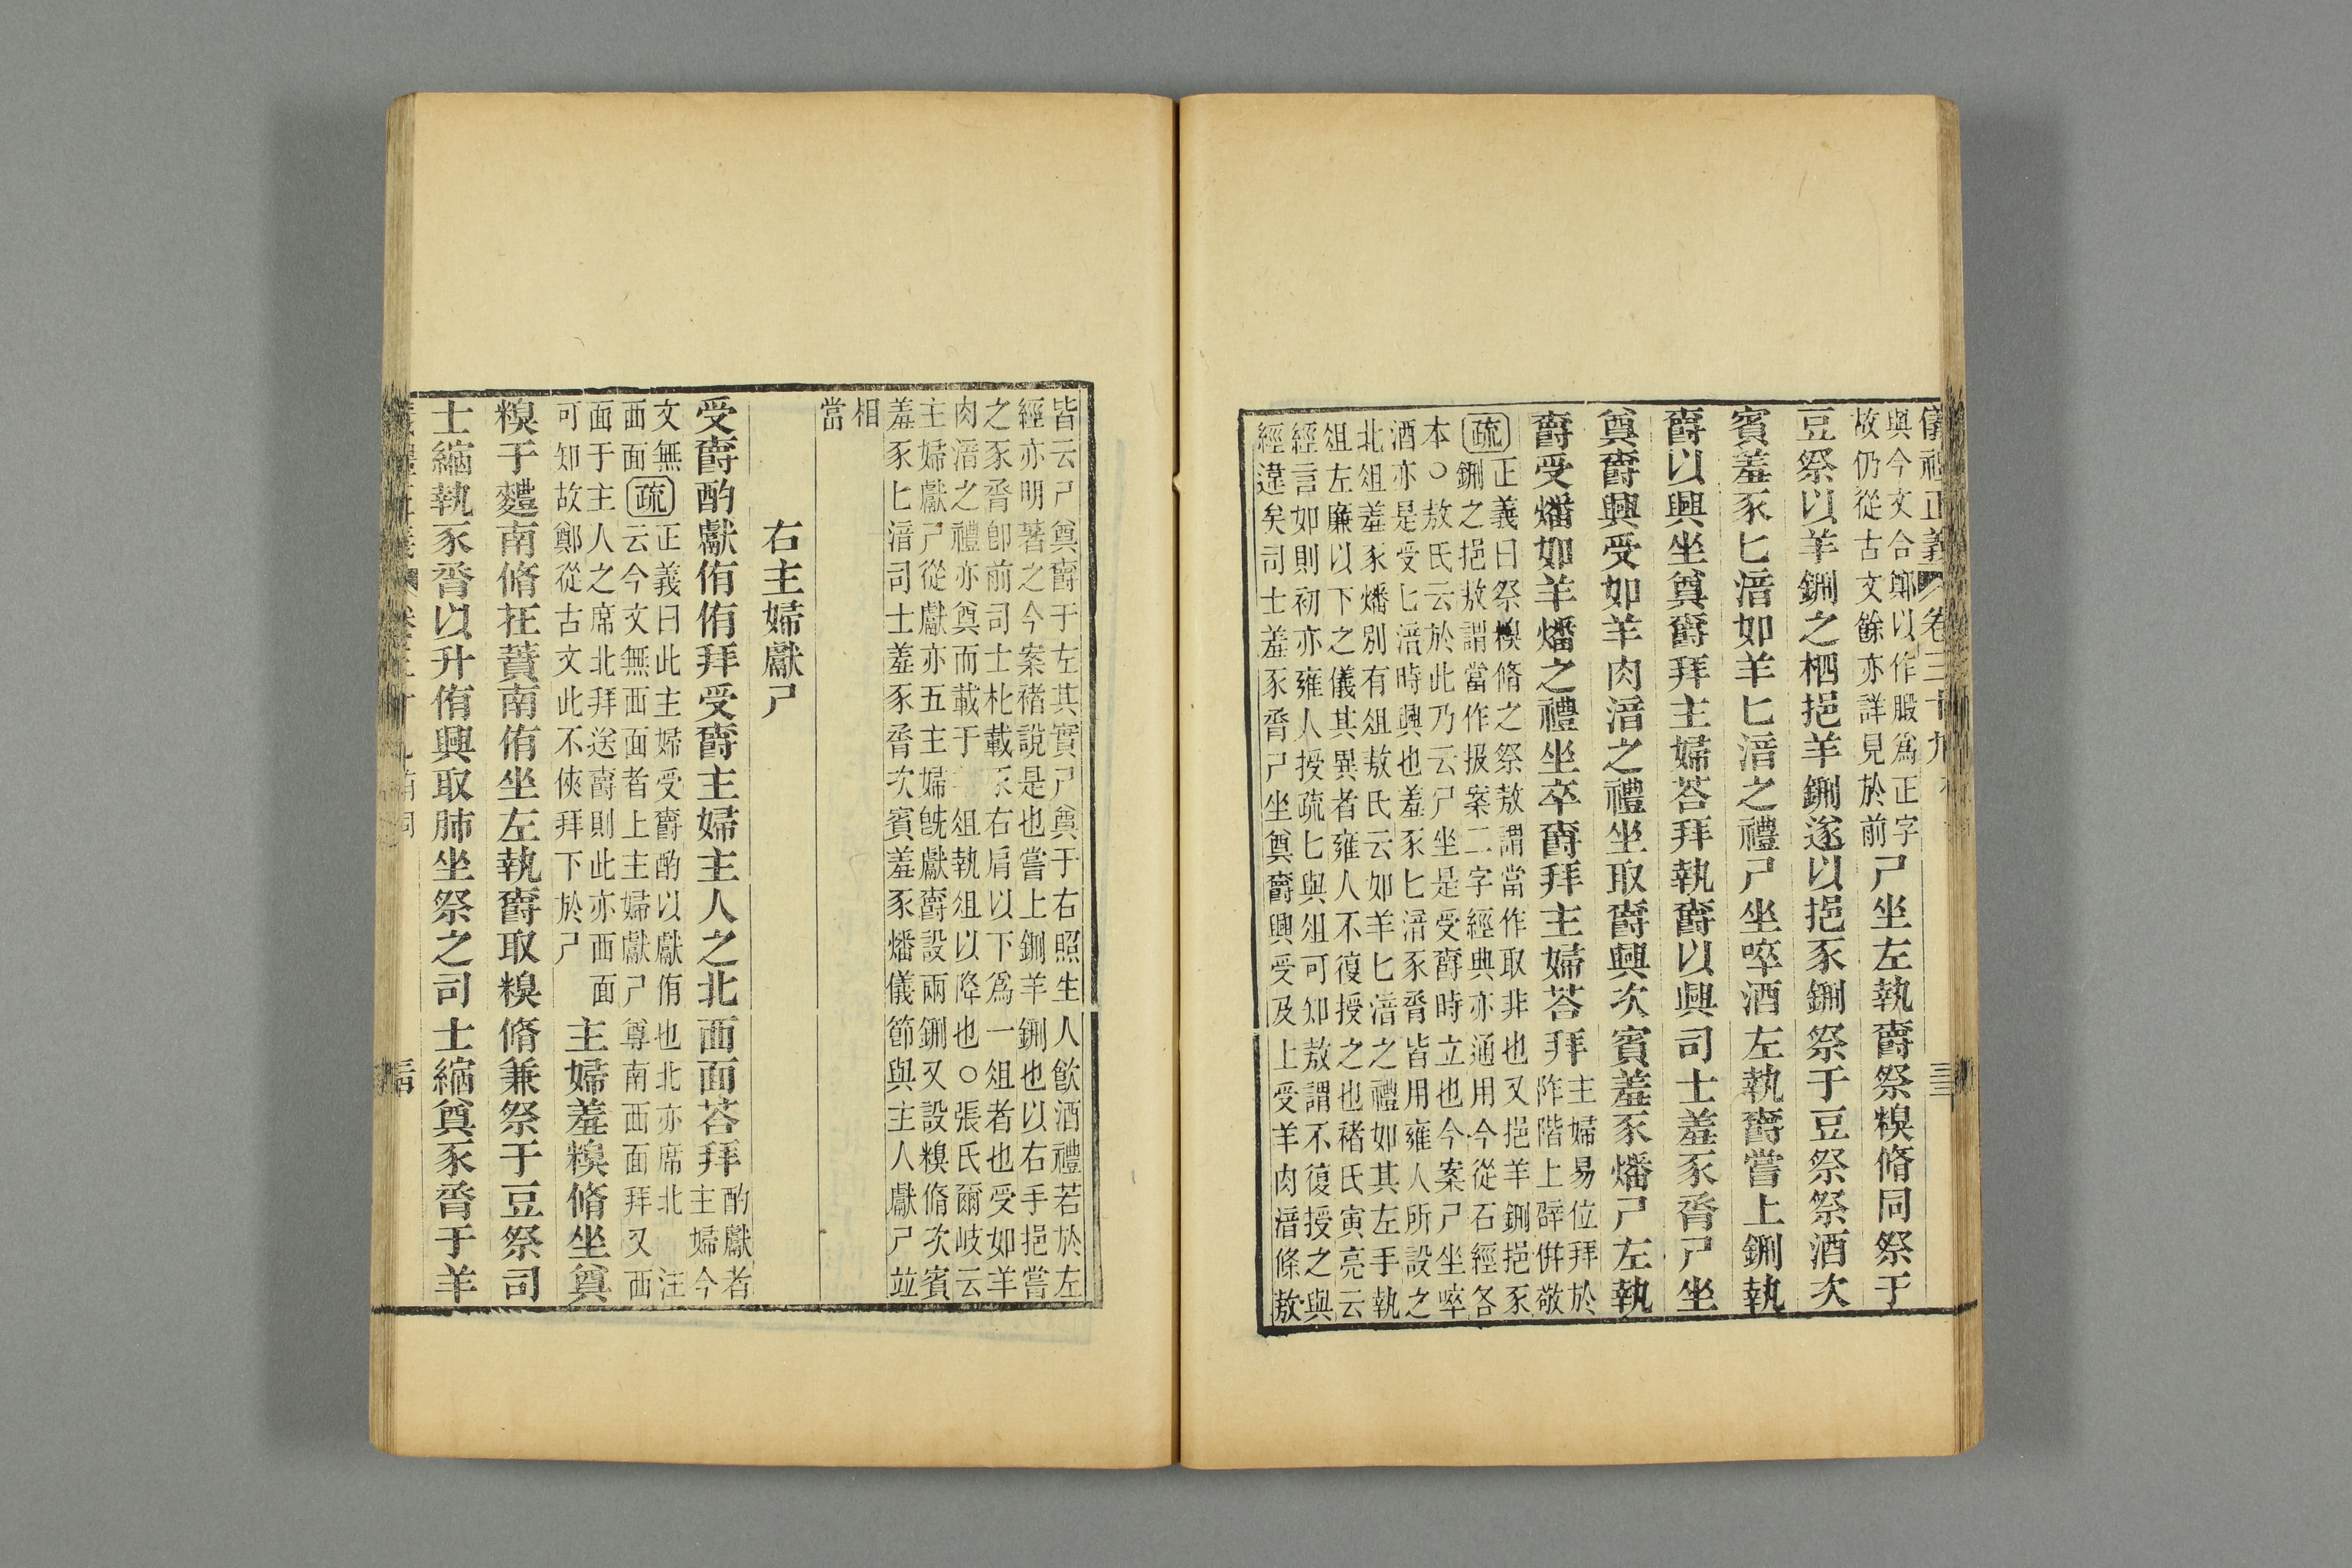 儀禮正義 卷三十九
與今文合鄭以作腶爲正字
故仍從古文餘亦詳見於前
尸坐左執爵祭糗脩同祭于
豆祭以羊鉶之柶挹羊鉶遂以挹豕鉶祭于豆祭祭酒次
賓羞豕匕湇如羊匕湇之禮尸坐啐酒左執爵嘗上鉶執
爵以興坐奠爵拜主婦荅拜執爵以興司士羞豕脀尸坐
奠爵興受如羊肉湇之禮坐取爵興次賓羞豕燔尸左執
爵受燔如羊燔之禮坐卒爵拜主婦荅拜
主婦易位拜於
阼階上辟併敬
疏
正義曰祭糗脩之祭敖謂當作取非也又挹羊鉶挹豕
鉶之挹敖謂當作扱案二字經典亦通用今從石經各
本○敖氏云於此乃云尸坐是受爵時立也今案尸坐啐
酒亦是受匕湇時興也羞豕匕湇豕脀皆用雍人所設之
北俎羞豕燔別有俎敖氏云如羊匕湇之禮如其左手執
俎左廉以下之儀其異者雍人不復授之也褚氏寅亮云
經言如則初亦雍人授疏匕與俎可知敖謂不復授之與
經違矣司士羞豕脀尸坐奠爵興受及上受羊肉湇條敖
皆云尸奠爵于左其實尸奠于右照生人飲酒禮若於左
經亦明著之今案褚說是也嘗上鉶羊鉶也以右手挹嘗
之豕脀卽前司士朼載右肩以下爲一俎者也受如羊
肉湇之禮亦奠而載于俎執俎以降也○張氏爾岐云
主婦獻尸從獻亦五主婦旣獻爵設兩鉶又設糗脩次賓
羞豕匕湇司士羞豕脀次賓羞豕燔儀節與主人獻尸竝
相
當
右主婦獻尸
受爵酌獻侑侑拜受爵主婦主人之北西面荅拜
酌獻者
主婦今
文無
西面
疏
正義曰此主婦受爵酌以獻侑也北亦席北 汪
云今文無西面者上主婦獻尸尊南西面拜又西
面于主人之席北拜送爵則此亦西面
可知故鄭從古文此不俠拜下於尸
主婦羞糗脩坐奠
糗于麷南脩在蕡南侑坐左執爵取糗脩兼祭于豆祭司
士縮執豕脀以升侑興取肺坐祭之司士縮奠豕脀于羊